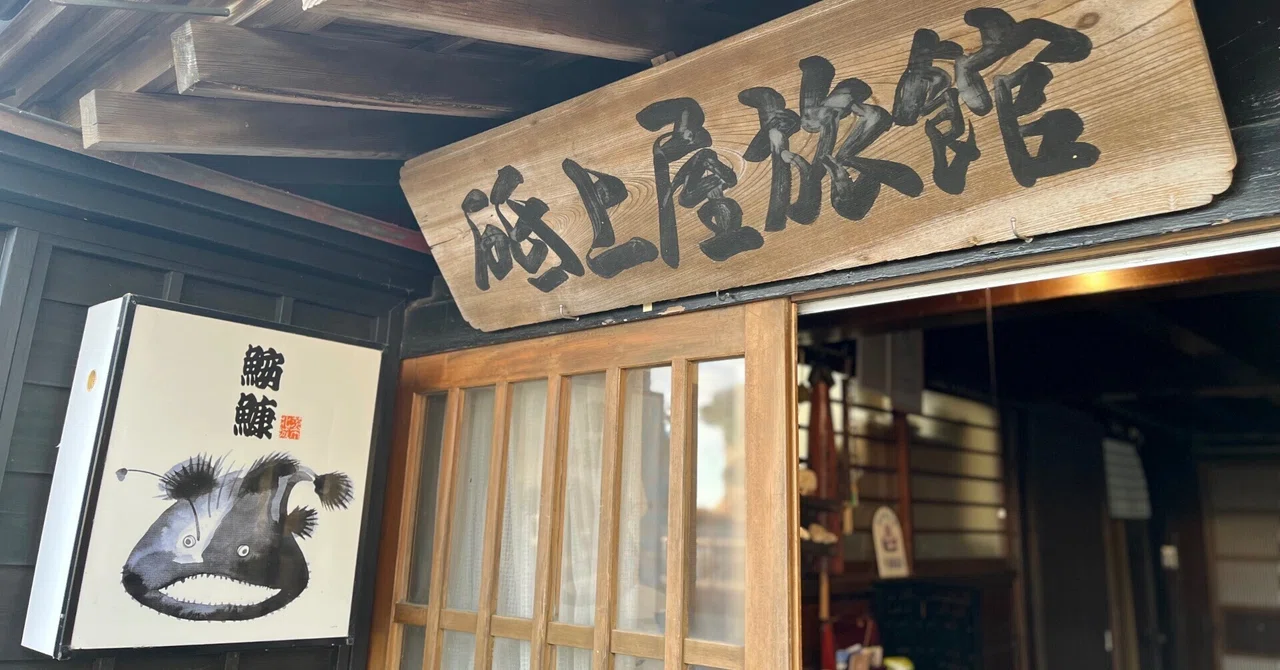 砥上屋旅館
鮟
鱇